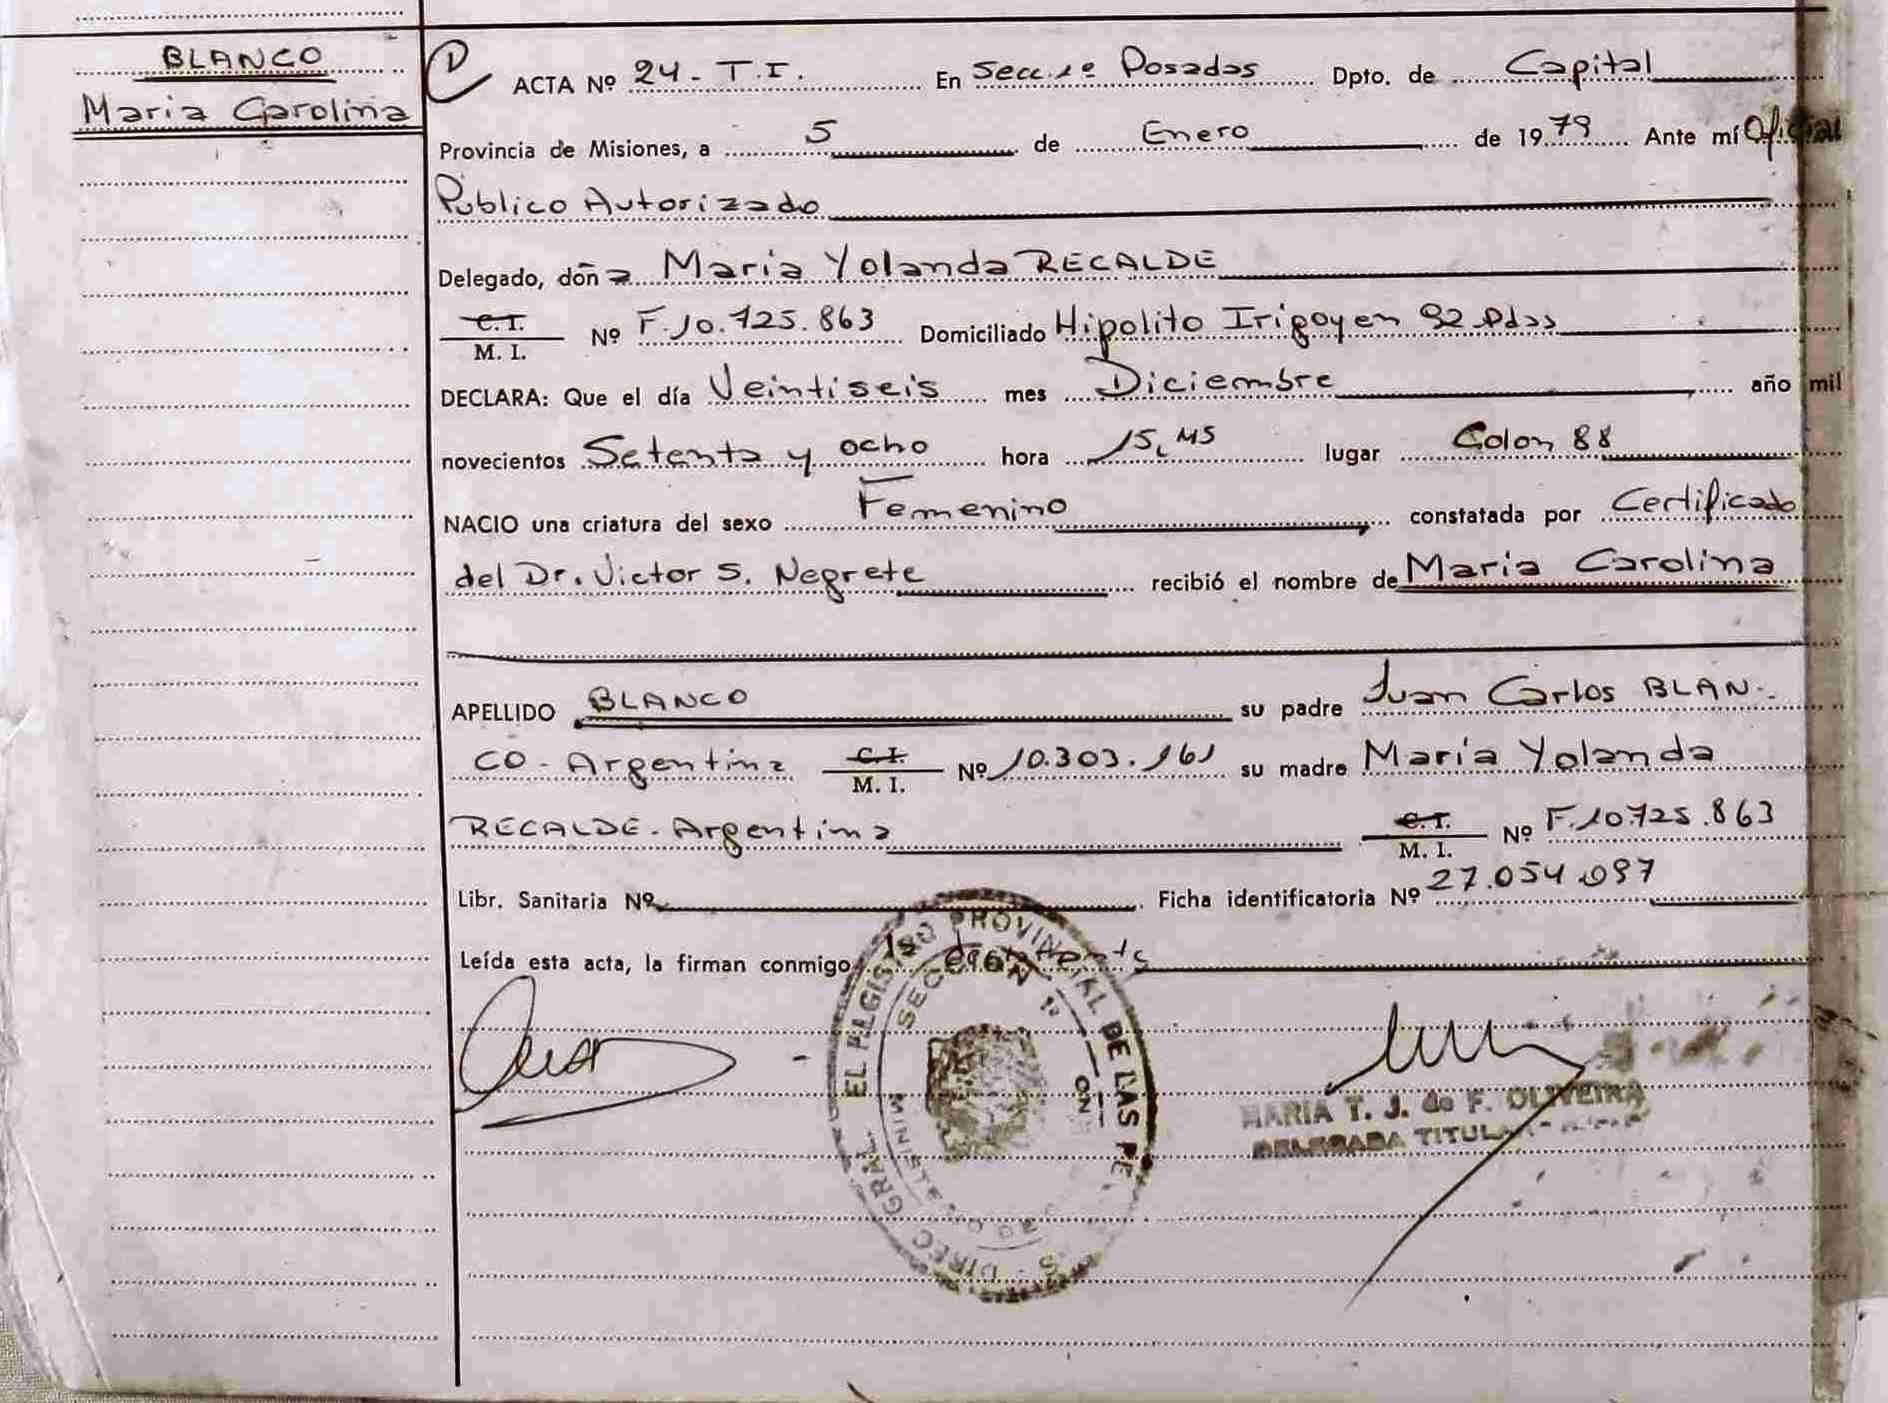 BLANCO
Maria Carolina
ACTA Nº 24 - T.I. En Secc. 1º Posadas Dpto. de Capital
Provincia de Misiones, a 5 de Enero de 1979 Ante mí Oficial
Público Autorizado
Delegado, doña Maria Yolanda RECALDE
C.I.
M. I. Nº F.10.725.863 Domiciliado Hipolito Irigoyen 92 Pdas
DECLARA: Que el día Veintiseis mes Diciembre año mil
novecientos Setenta y ocho hora 15,45 lugar Colon 88
NACIO una criatura del sexo Femenino constatada por Certificado
del Dr. Victor S. Negrete recibió el nombre de Maria Carolina
APELLIDO BLANCO su padre Juan Carlos BLAN-
CO - Argentina C.I. M. I. Nº 10.303.161 su madre María Yolanda
RECALDE - Argentina C.I. M. I. Nº F.10.725.863
Libr. Sanitaria Nº Ficha identificatoria Nº 27.054.097
Leída esta acta, la firman conmigo la
EL REGISTRO PROVINCIAL DE LAS PE
SECCION 1ª
DIREC. GRAL.
MARIA T. J. de F. OLIVEIRA
DELEGADA TITULAR